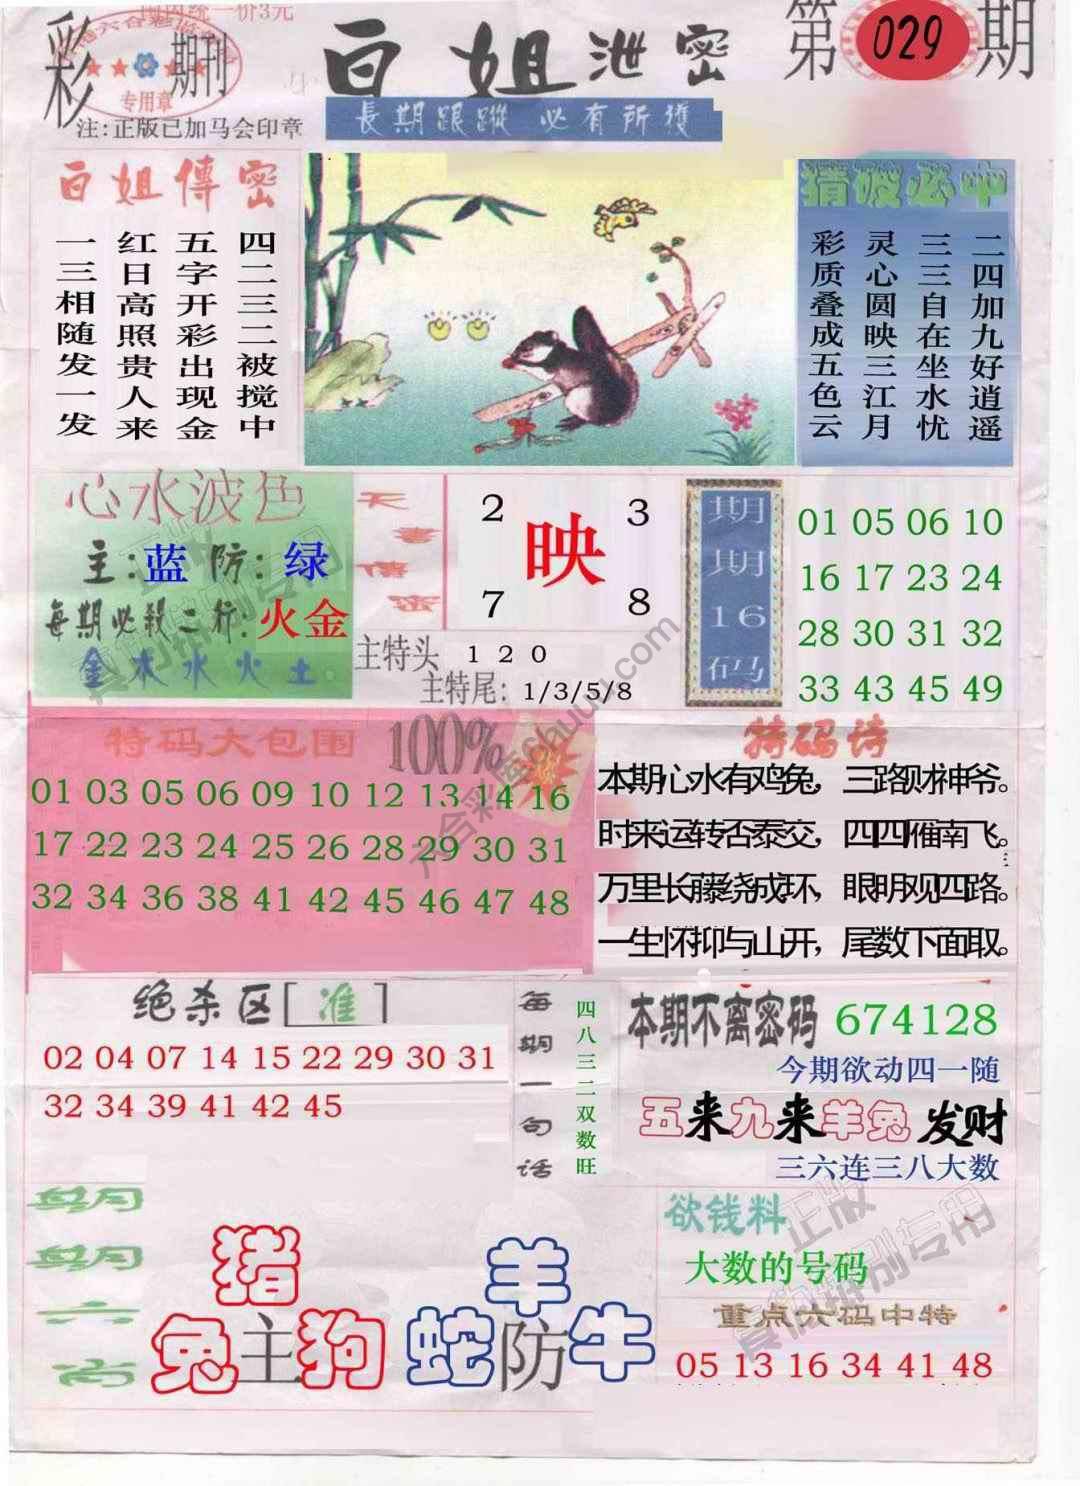 国内统一价3元
彩
期刊
专用章
白姐泄密
第029期
注:正版已加马会印章
長期跟蹤 必有所獲
白姐傳密
四二三二被搅中
五字开彩出现金
红日高照贵人来
一三相随发一发
猜波必中
二四加九好逍遥
三三自在坐水忧
灵心圆映三江月
彩质叠成五色云
心水波色
主:蓝 防:绿
每期必殺二行:火金
金木水火土
天書傳密
2 3
映
7 8
主特头 1 2 0
主特尾: 1/3/5/8
期期16码
01 05 06 10
16 17 23 24
28 30 31 32
33 43 45 49
特码大包围 100%
01 03 05 06 09 10 12 13 14 16
17 22 23 24 25 26 28 29 30 31
32 34 36 38 41 42 45 46 47 48
特码诗
本期心水有鸡兔，三路财神爷。
时来运转否泰交，四四雁南飞。
万里长藤绕成环，眼明观四路。
一生怀抑与山开，尾数下面取。
绝杀区[准]
02 04 07 14 15 22 29 30 31
32 34 39 41 42 45
每期一句话
四八三二双数旺
本期不离密码 674128
今期欲动四一随
五来九来羊兔发财
三六连三八大数
期期六肖
猪
兔主狗
羊
蛇防牛
欲钱料
大数的号码
重点六码中特
05 13 16 34 41 48